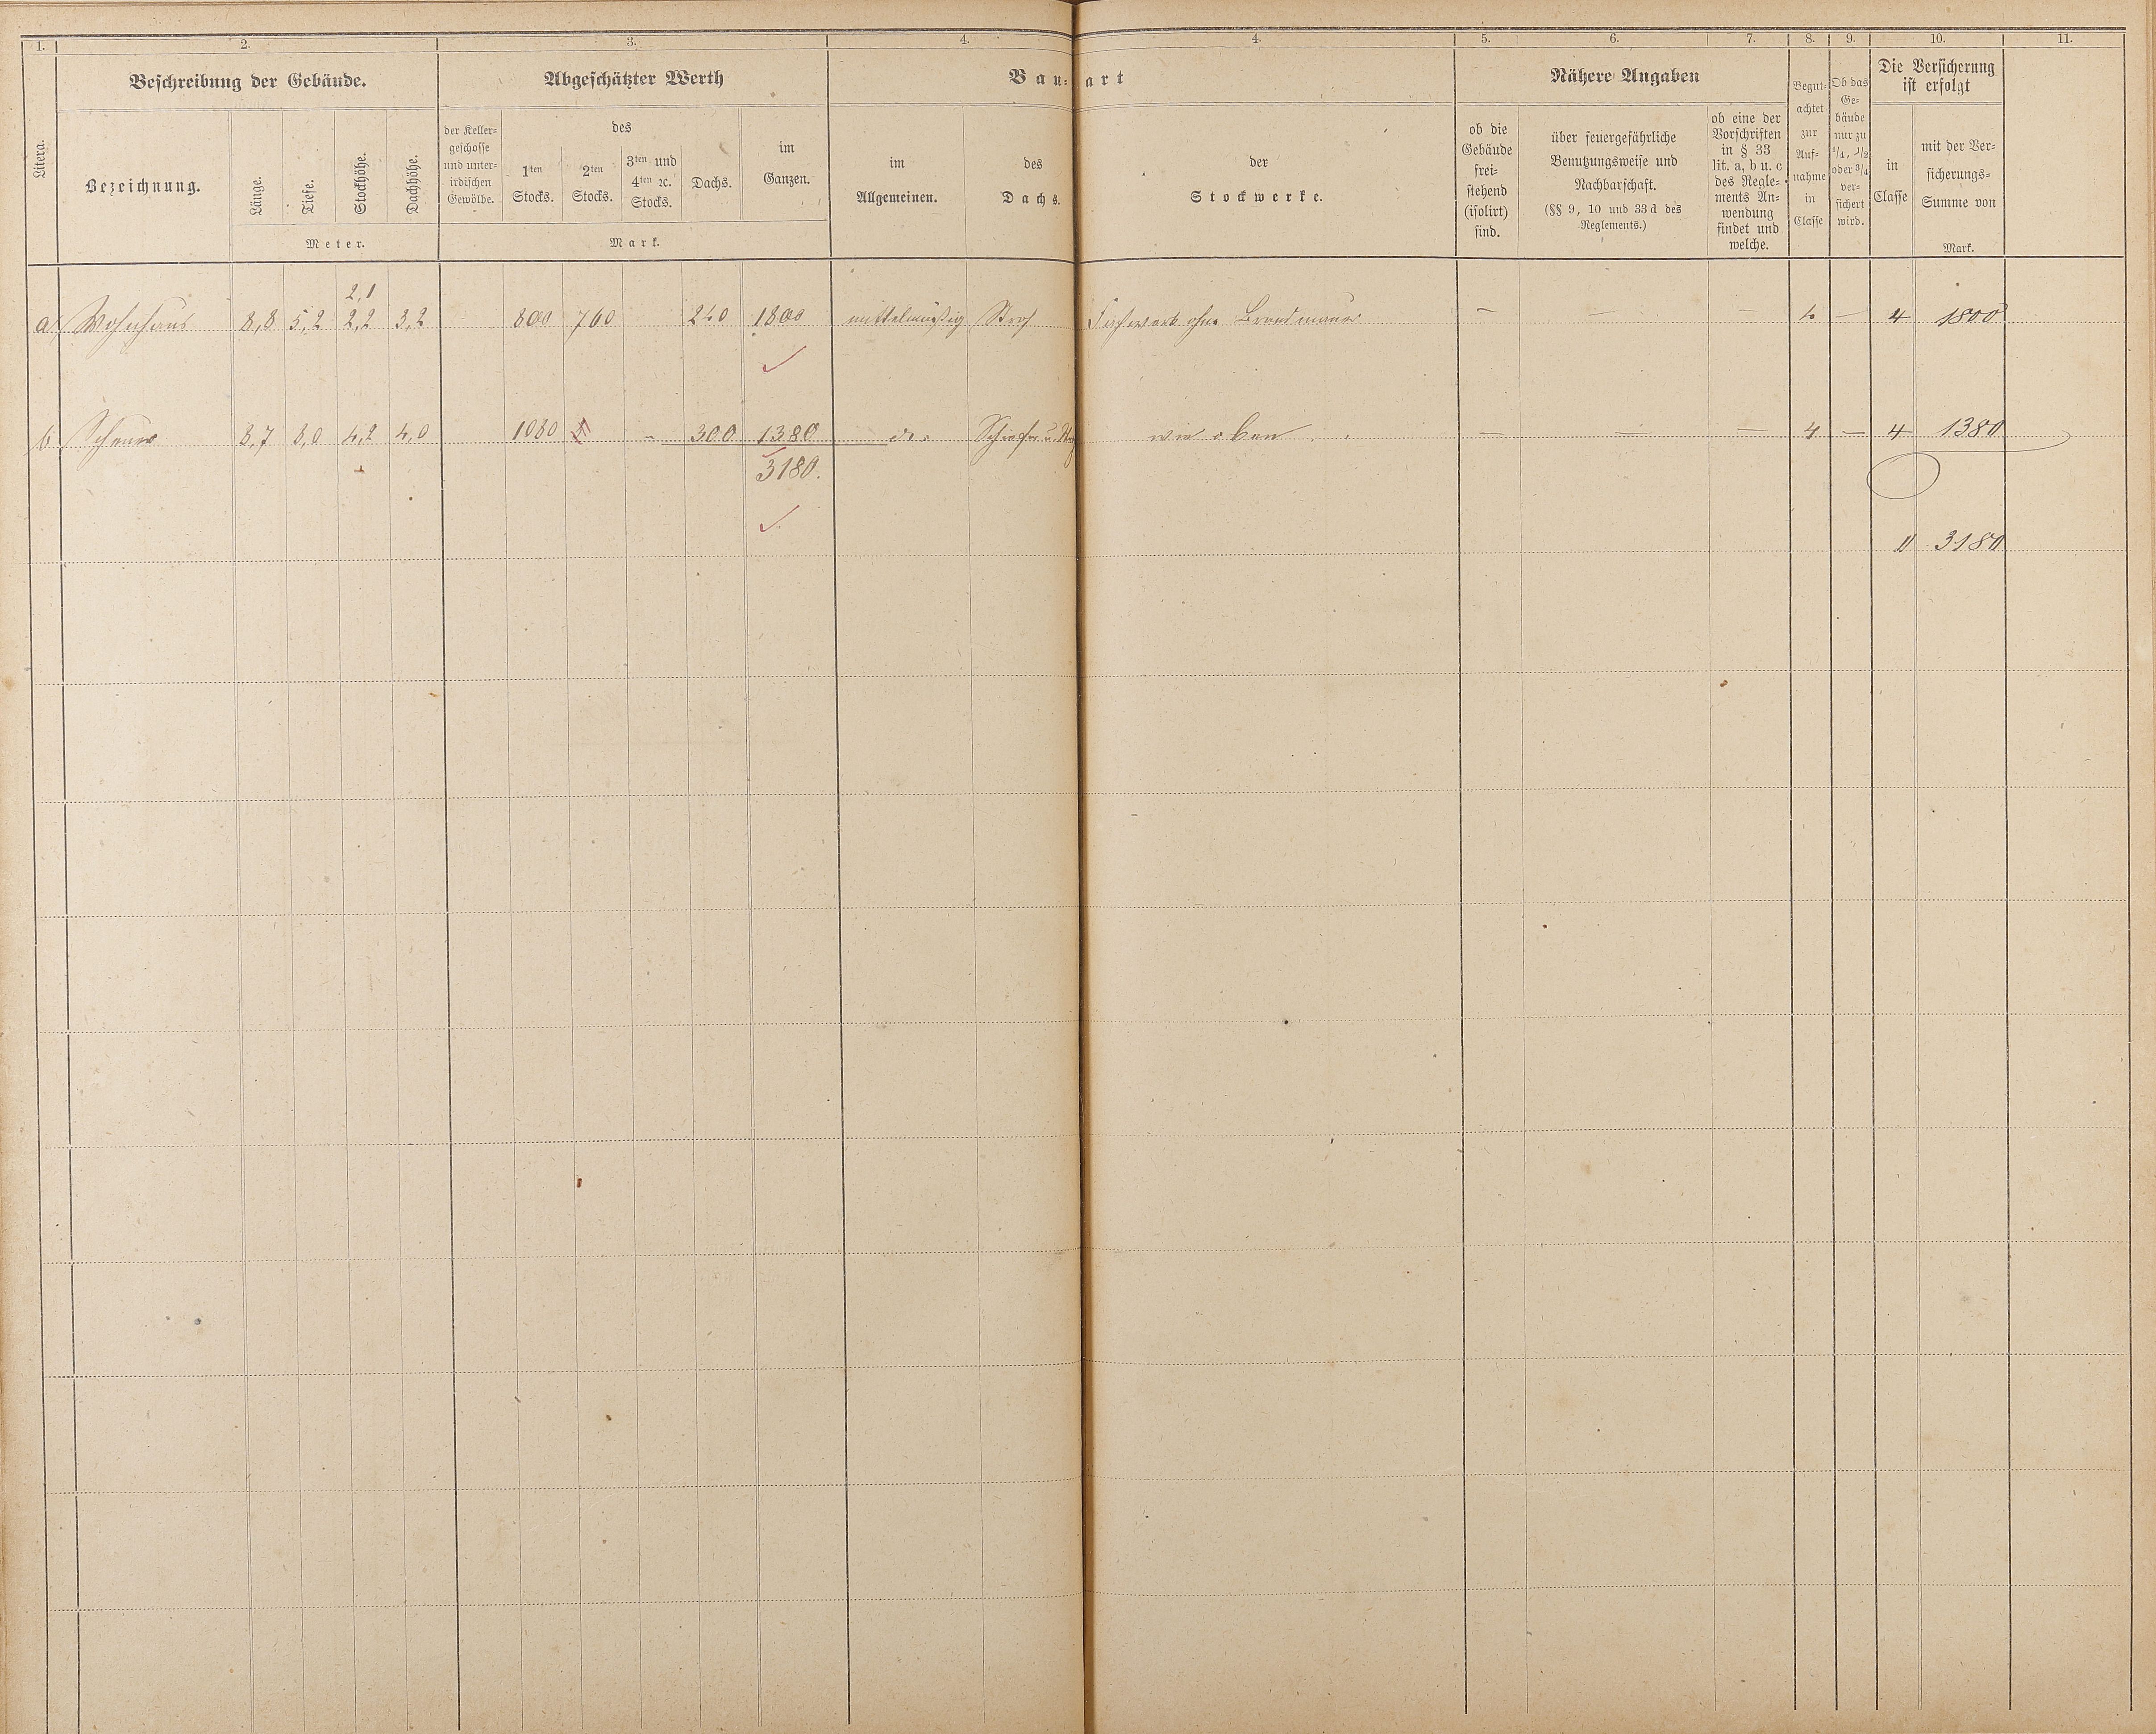 1. 2. 3. 4. 4. 5. 6. 7. 8. 9. 10. 11.
Beschreibung der Gebäude.
Abgeschätzter Werth
Bau-art
Nähere Angaben
Die Versicherung
ist erfolgt
Litera.
Bezeichnung.
Länge.
Tiefe.
Stockhöhe.
Dachhöhe.
Meter.
der Keller-
geschosse
und unter-
irdischen
Gewölbe.
des
1ten
Stocks.
2ten
Stocks.
3ten und
4ten ꝛc.
Stocks.
Dachs.
im
Ganzen.
Mark.
im
Allgemeinen.
des
Dachs.
der
Stockwerke.
ob die
Gebäude
frei-
stehend
(isolirt)
sind.
über feuergefährliche
Benutzungsweise und
Nachbarschaft.
(§§ 9, 10 und 33d des
Reglements.)
ob eine der
Vorschriften
in § 33
lit. a, b u. c
des Regle-
ments An-
wendung
findet und
welche.
Begut-
achtet
zur
Auf-
nahme
in
Classe
Ob das
Ge-
bäude
nur zu
1/4, 1/2
oder 3/4
ver-
sichert
wird.
in
Classe
mit der Ver-
sicherungs-
Summe von
Mark.
2,1
a Wohnhaus 8,8 5,2 2,2 3,2 800 760 240 1800 mittelmäßig Stroh Fachwerk ohne Brandmauer — — — 4 — 4 1800
b Scheuer 8,7 8,0 4,2 4,0 1080 300 1380 do. Schiefer u. wie oben — — — 4 — 4 1380
3180.
3180